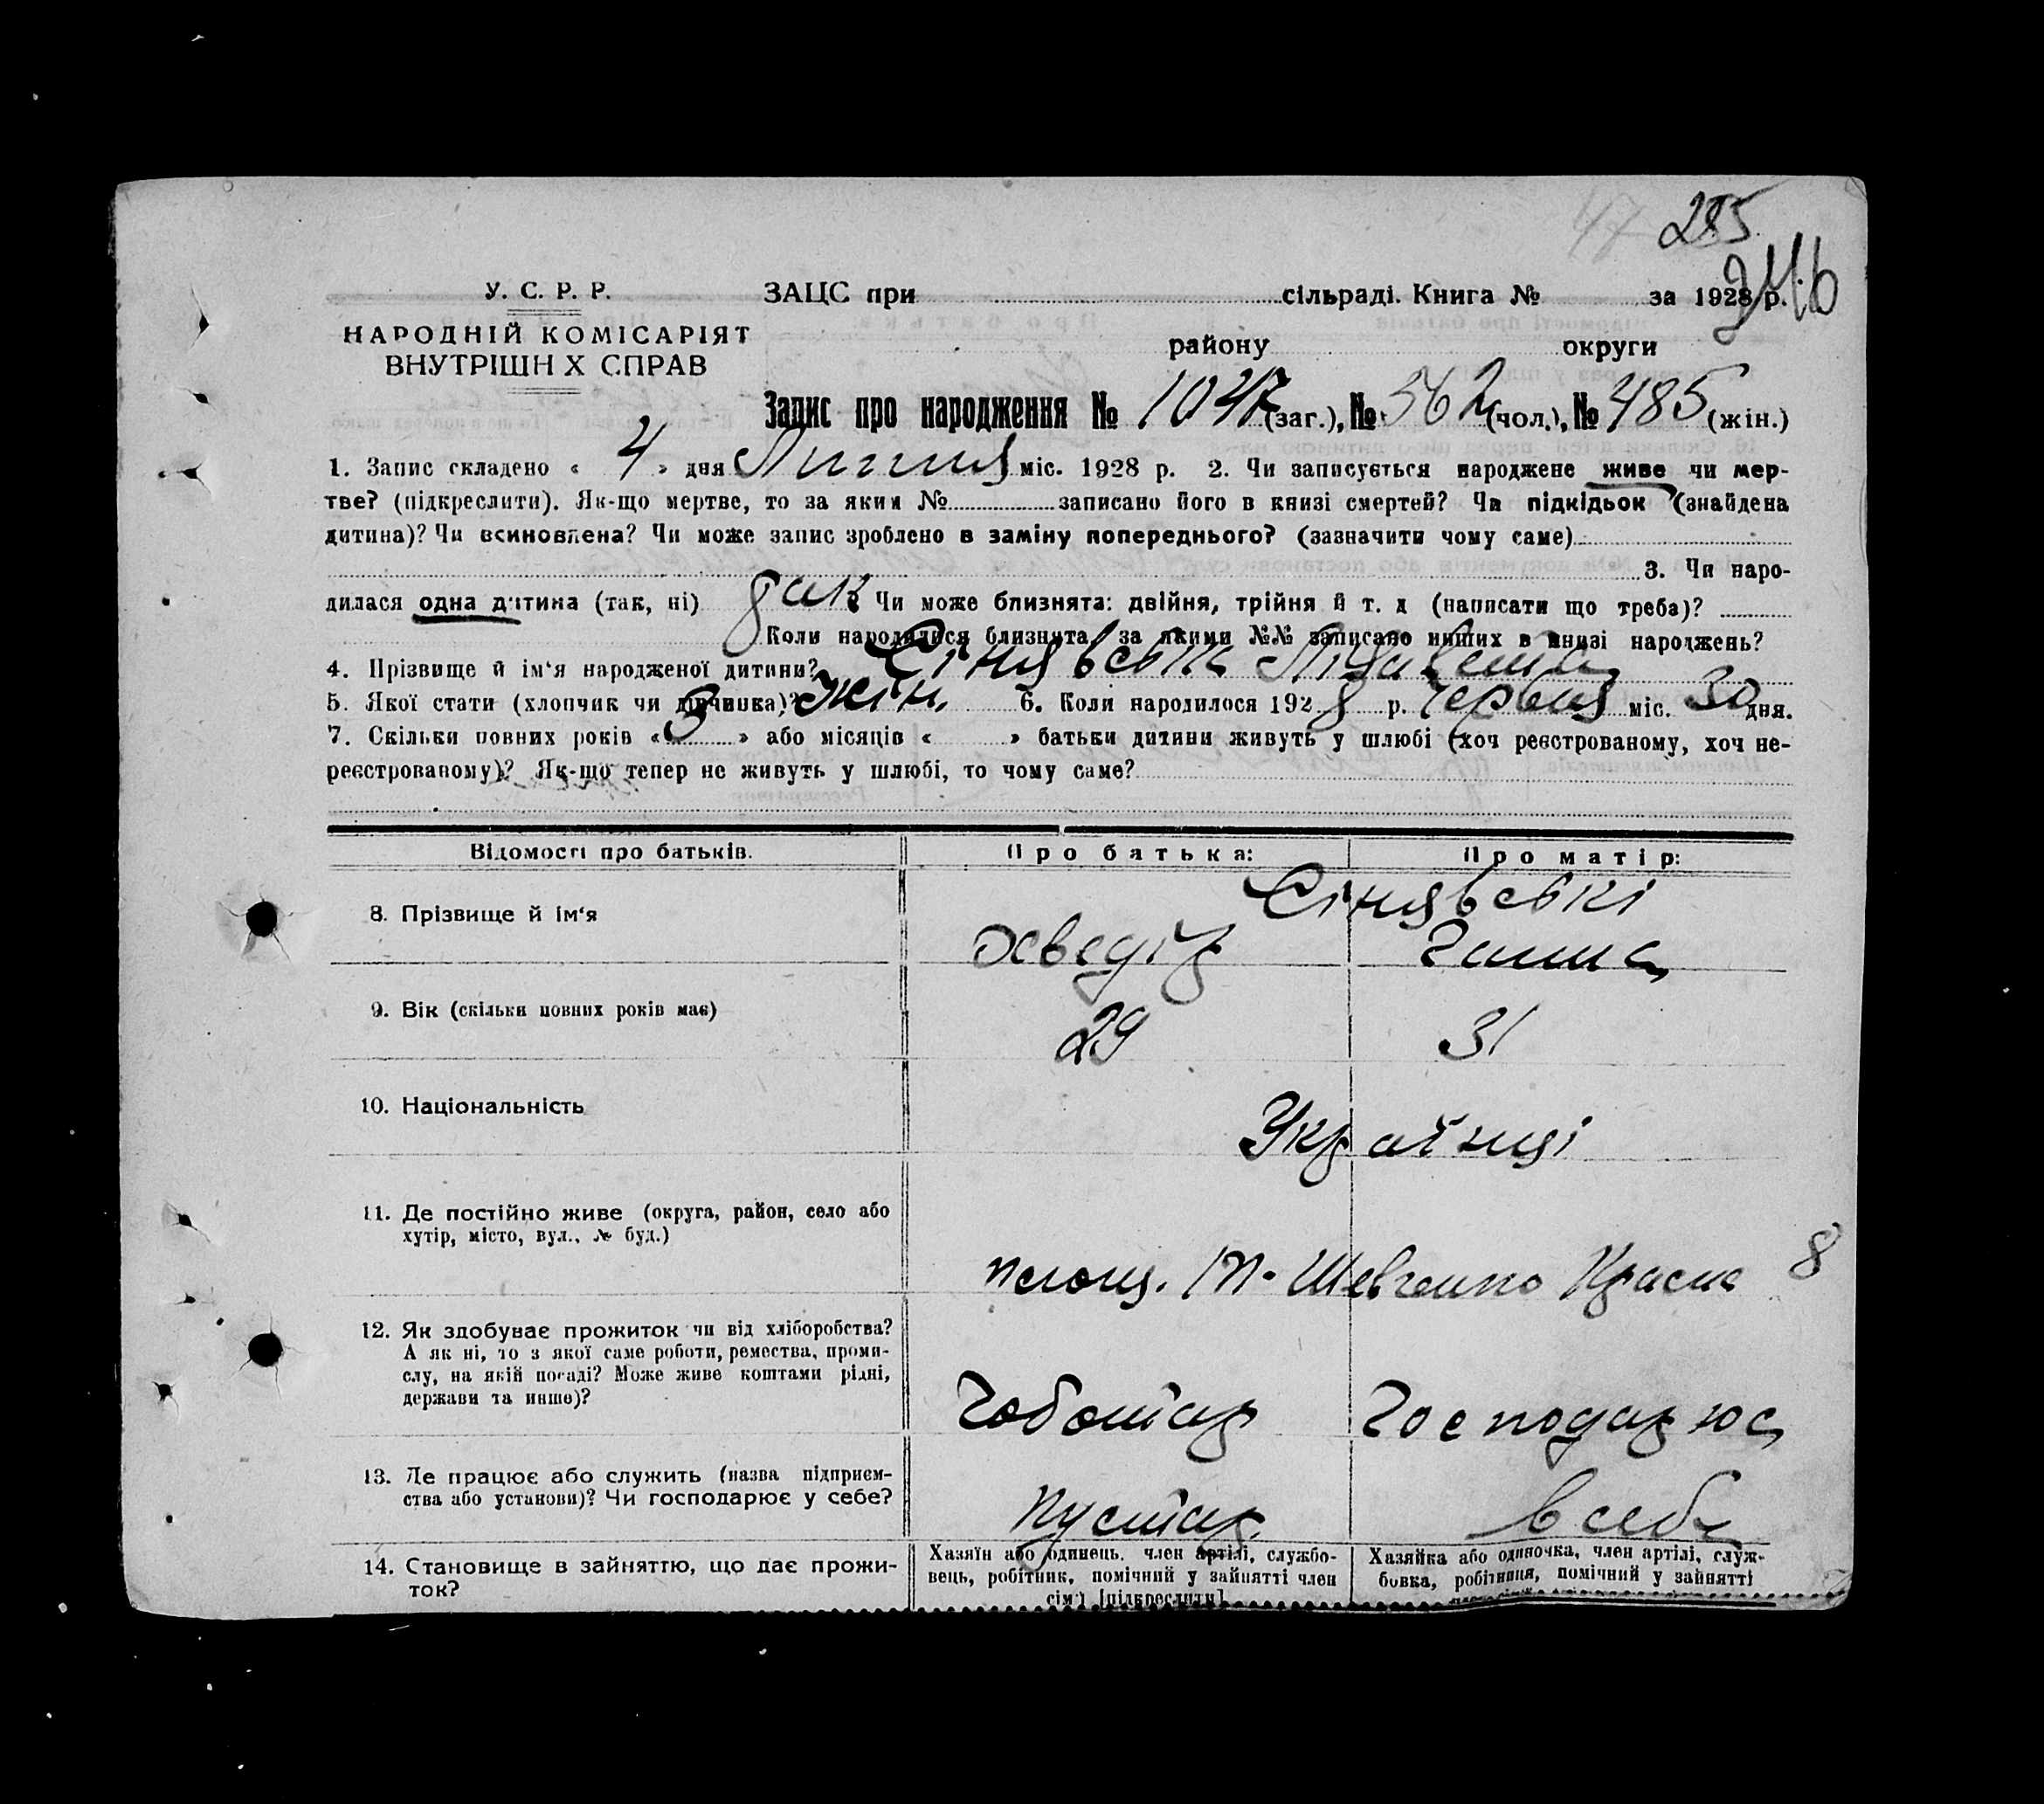 285
246
У. С. Р. Р.
НАРОДНІЙ КОМІСАРІЯТ
ВНУТРІШН Х СПРАВ
ЗАЦС при сільраді. Книга № за 1928 р.
району округи
Запис про народження № 1047 (заг.), № 562 (чол.), № 485 (жін.)
1. Запис складено « 4 » дня Липня міс. 1928 р. 2. Чи записується народжене живе чи мер-
тве? (підкреслити). Як-що мертве, то за яким № записано його в книзі смертей? Чи підкідьок (знайдена
дитина)? Чи всиновлена? Чи може запис зроблено в заміну попереднього? (зазначити чому саме)
3. Чи наро-
дилася одна дитина (так, ні) так Чи може близнята: двійня, трійня й т. д (написати що треба)?
Коли народилися близнята, за якими №№ записано инших в книзі народжень?
4. Прізвище й ім‘я народженої дитини? Сінявська Лізавета
5. Якої стати (хлопчик чи дівчинка)? жін. 6. Коли народилося 1928 р. Червня міс. 30 дня.
7. Скільки повних років « 3 » або місяців « » батьки дитини живуть у шлюбі (хоч реєстрованому, хоч не-
реєстрованому)? Як-що тепер не живуть у шлюбі, то чому саме?
Відомості про батьків. Про батька: Про матір:
Сінявські
8. Прізвище й ім‘я Ганна
9. Вік (скільки повних років має) 29 31
10. Національність Українці
11. Де постійно живе (округа, район, село або
хутір, місто, вул., № буд.)
площ. Т. Шевченко Красна 8
12. Як здобуває прожиток чи від хліборобства?
А як ні, то з якої саме роботи, ремества, проми-
слу, на якій посаді? Може живе коштами рідні,
держави та инше)?
Чоботар Господарює
13. Де працює або служить (назва підприєм-
ства або установи)? Чи господарює у себе?
Кустар. в себе
14. Становище в зайняттю, що дає прожи-
ток?
Хазяїн або одинець, член артілі, службо-
вець, робітник, помічний у зайнятті член
сім‘ї [підкреслити]
Хазяйка або одиночка, член артілі, служ-
бовка, робітниця, помічний у зайнятті